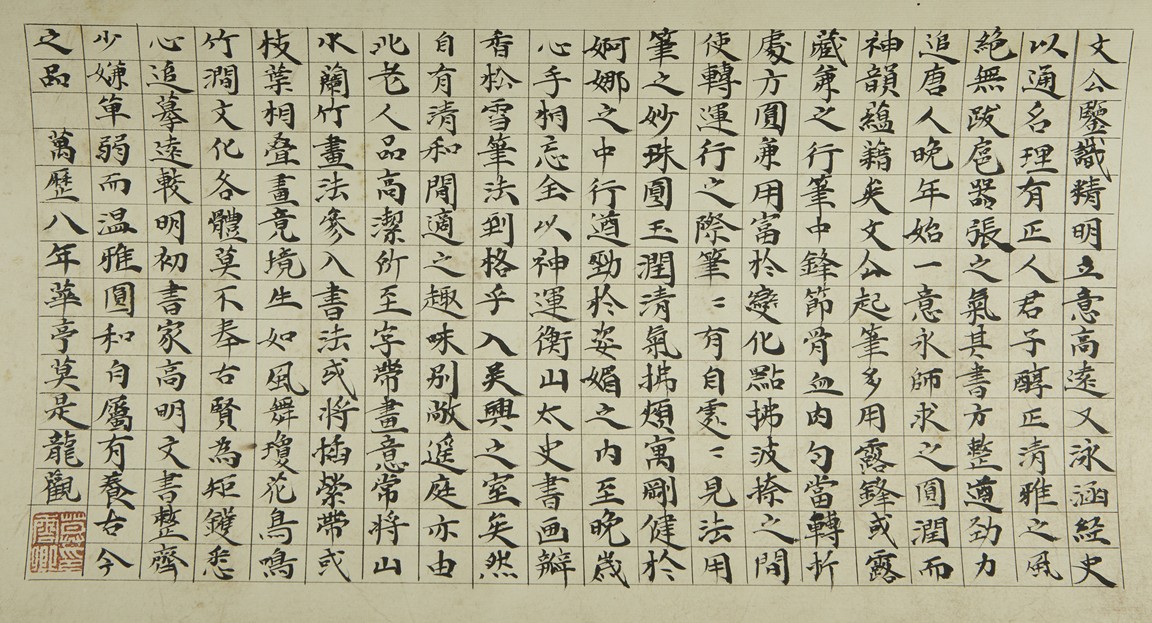 文公鑒識精明立意高遠又泳涵経史
以通名理有正人君子醇正清雅之風
絶無跋扈器張之氣其書方整遒劲力
追唐人晚年始一意永師求之圓潤而
神韻蘊藉矣文公起筆多用露鋒或露
藏兼之行筆中鋒節骨血肉勻當轉折
處方圓兼用富於變化點拂波捺之間
使轉運行之際筆〻有自處〻見法用
筆之妙珠圓玉潤清氣拂煩寓剛健於
婀娜之中行遒勁於姿媚之内至晚歲
心手桐忘全以神運衡山太史書画辯
香松雪筆法到格乎入吴興之室矣然
自有清和閒適之趣味别敞遥庭亦由
此老人品高潔所至字帶畫意常將山
水蘭竹畫法參入書法或将插縈帶或
枝葉相叠畫竟境生如風舞瓊花鳥鳴
竹澗文化各體莫不奉古賢為矩鑊悉
心追摹遠較明初書家高明文書整齊
少嫌单弱而温雅圓和自屬有養古今
之品 萬歷八年華亭莫是龍觀